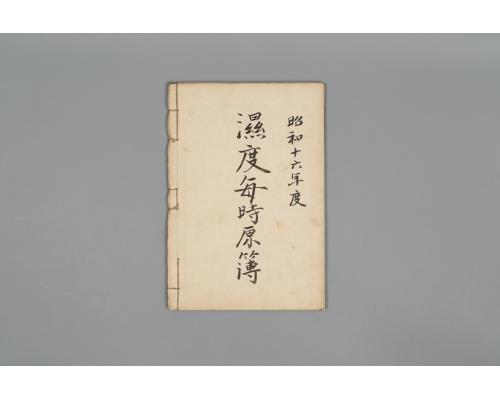 昭和十六年度
濕度每時原簿